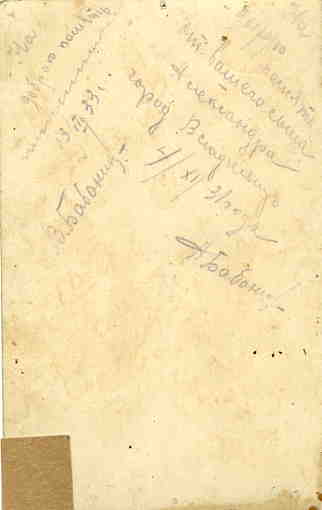 На
добрую память
13 IV 33 г.
В. Бабанин
На
добрую память
от вашего сына
Александра
город Владимир
4/XI 31 года
А Бабанин